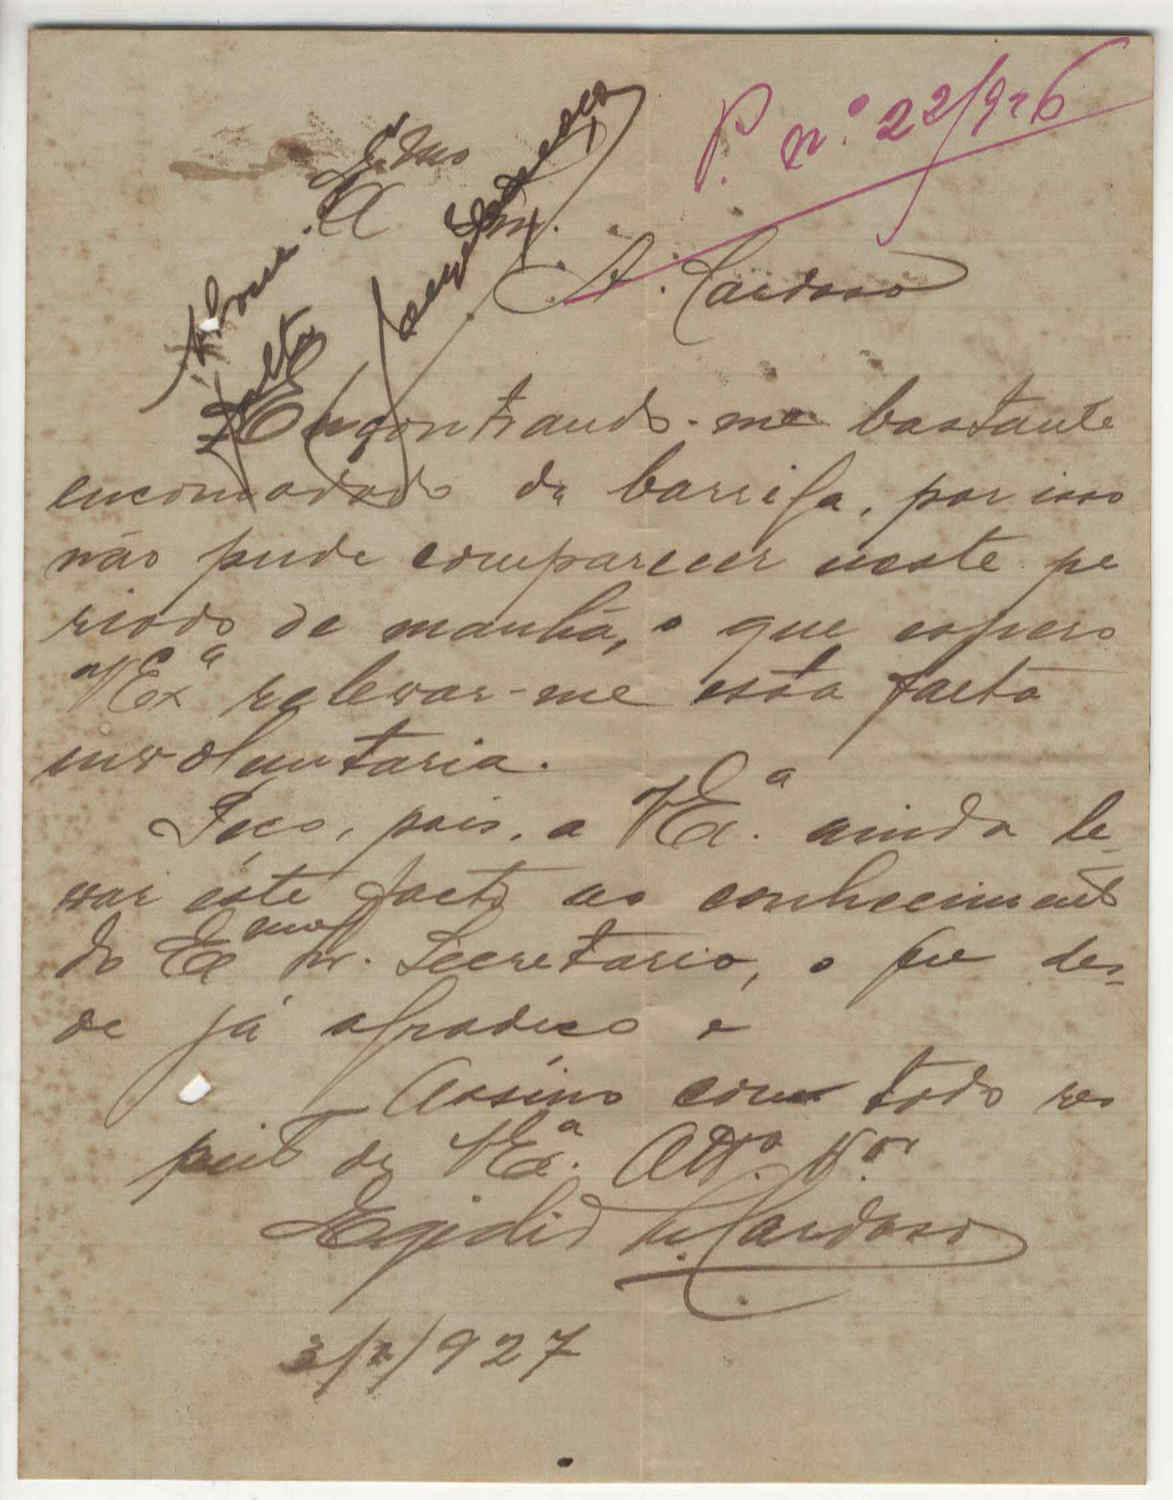 P. nº. 22/926
Exmo
Snr.
A. Cardoso
Abone
falta
Encontrando-me bastante
encomodado da barriga, por isso
não pude comparecer neste pe
riodo de manhã, o que espero
VExª relevar-me esta falta
involuntaria.
Peço, pois, a VExª. ainda le-
var éste facto ao conhecimento
do Exmo Sr. Secretario, o que des-
de já agradeço e
Assino com todo res
peito de VExª. Attº. V.or
Egidio M. Cardoso
3/2/927